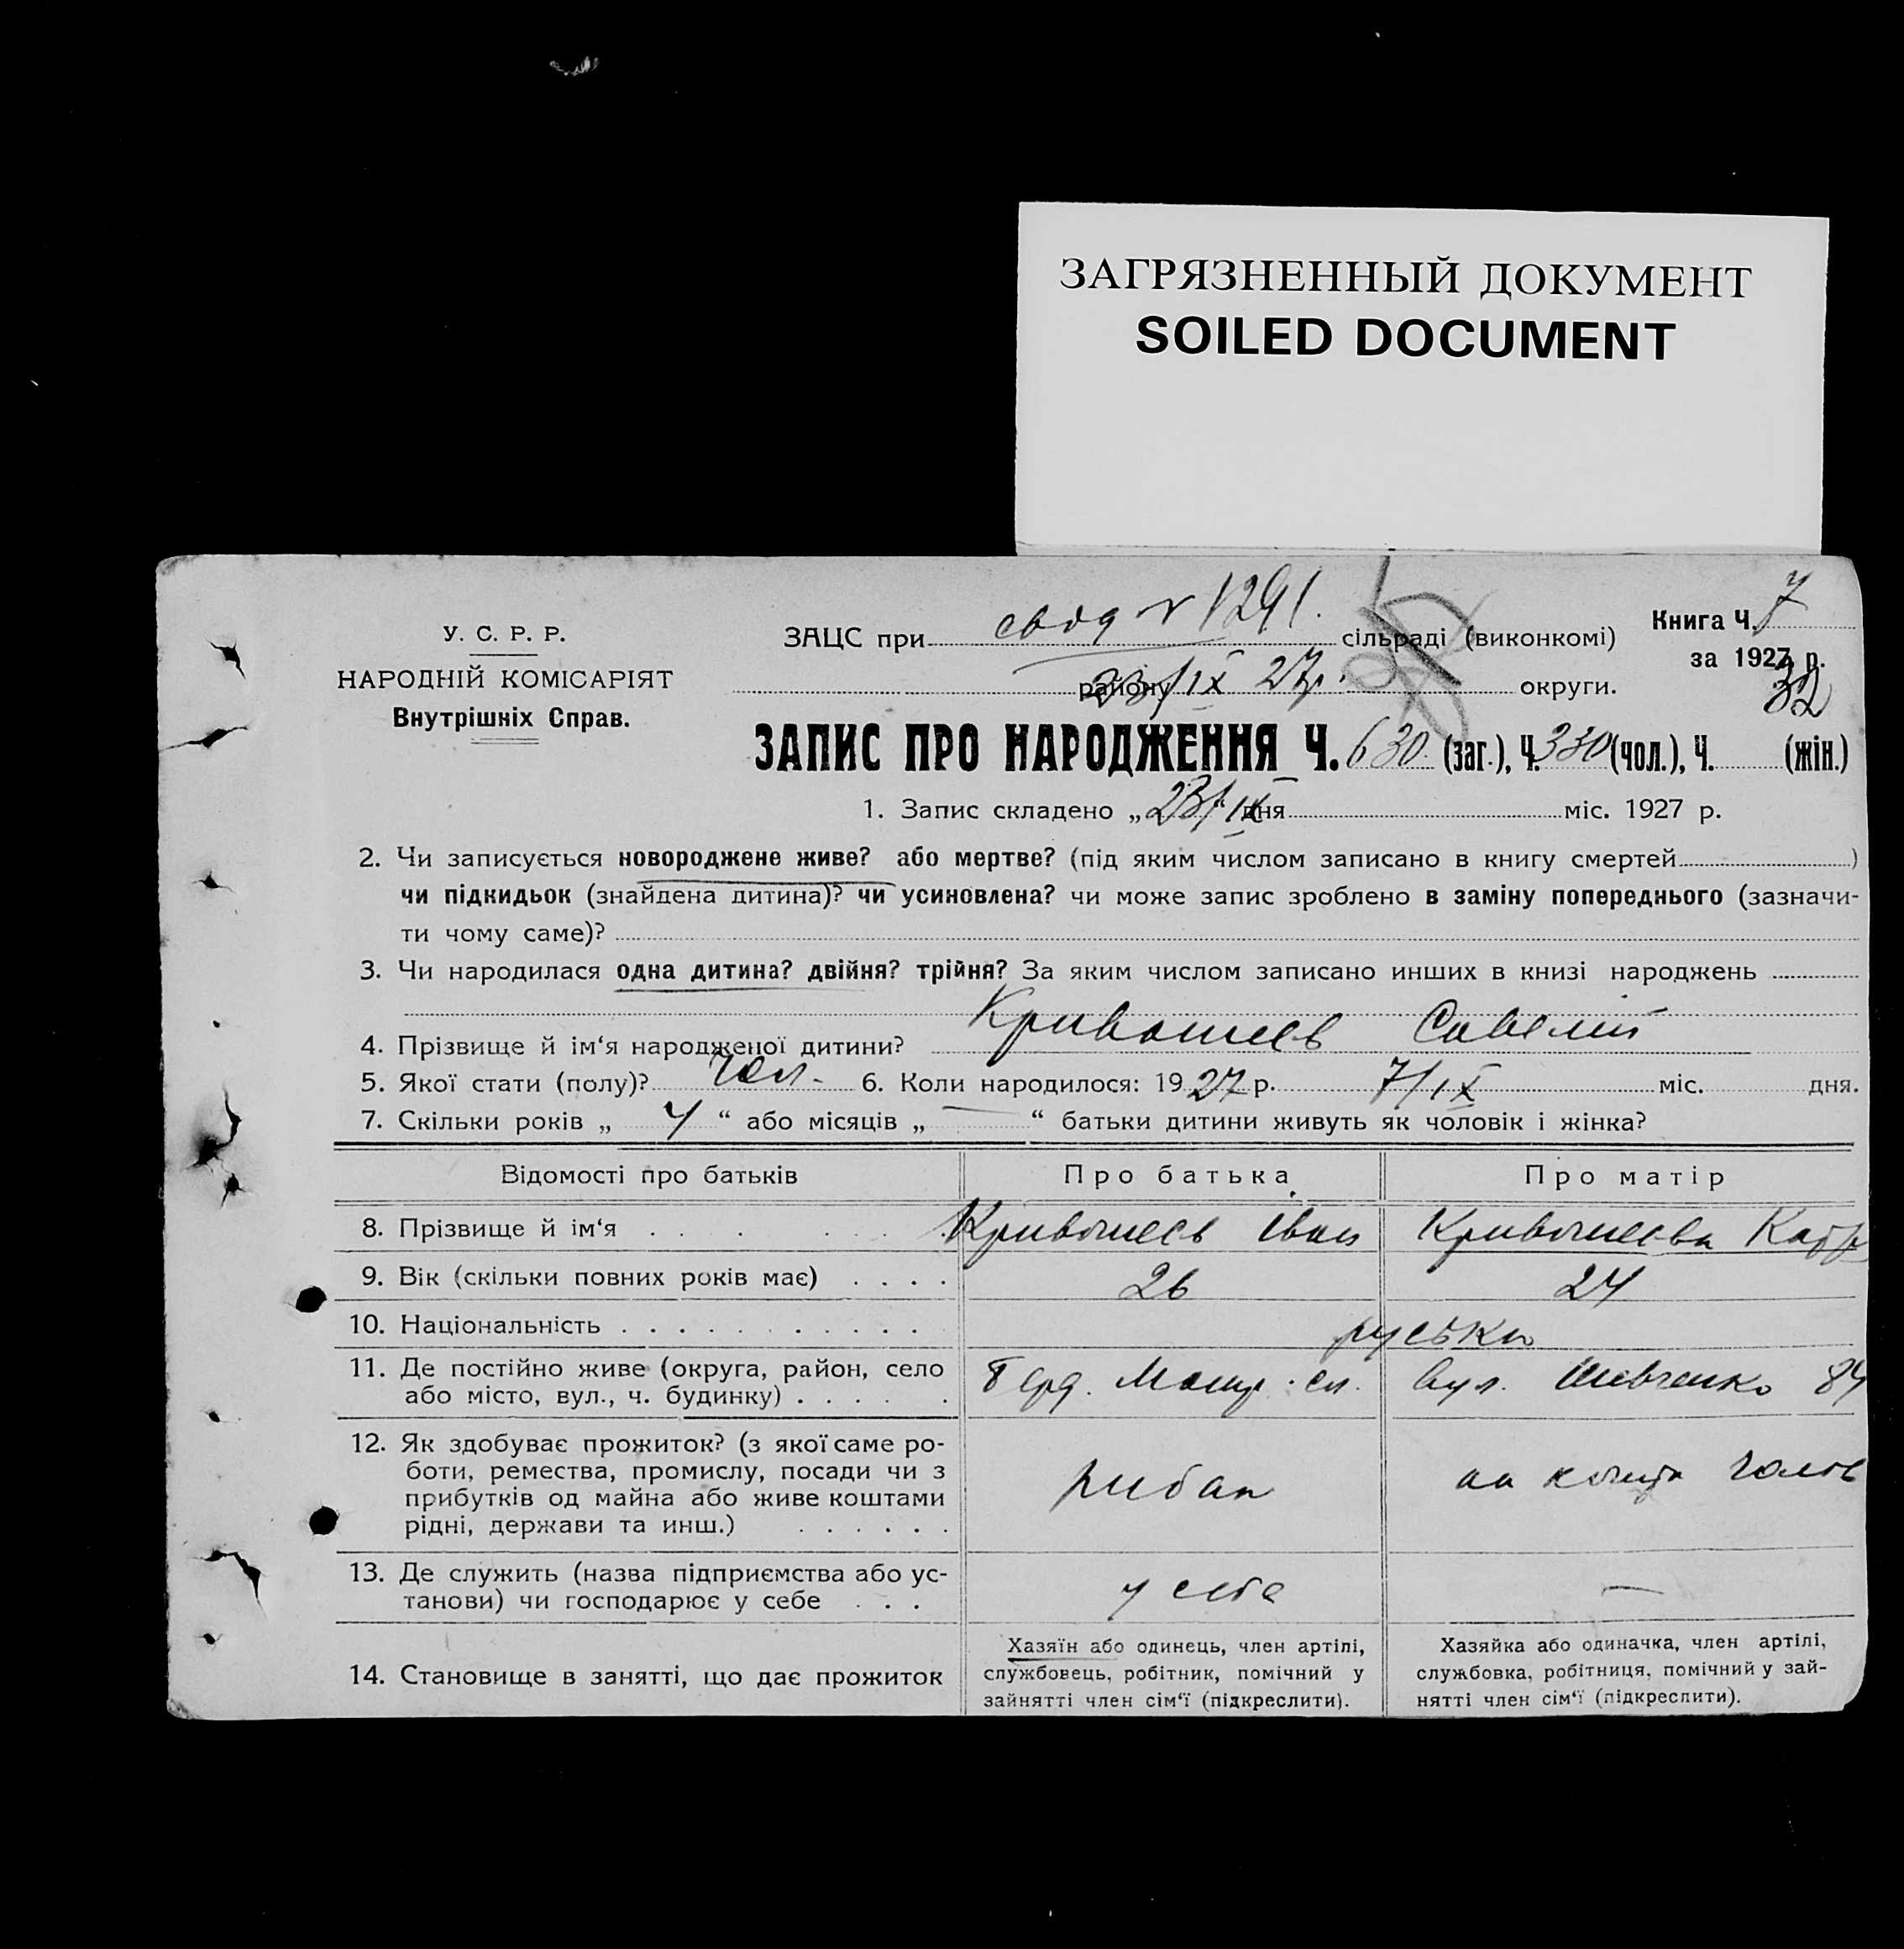 ЗАГРЯЗНЕННЫЙ ДОКУМЕНТ
SOILED DOCUMENT
У. С. Р. Р.
НАРОДНІЙ КОМІСАРІЯТ
Внутрішніх Справ.
ЗАЦС при свод № 1291. сільраді (виконкомі)
Книга Ч. 7
за 1927 р.
району 23/IX 27р. округи.
32
ЗАПИС ПРО НАРОДЖЕННЯ Ч. 630 (заг.), Ч. 330 (чол.), Ч. (жін.)
1. Запис складено „ 23/IX “ дня міс. 1927 р.
2. Чи записується новороджене живе? або мертве? (під яким числом записано в книгу смертей )
чи підкидьок (знайдена дитина)? чи усиновлена? чи може запис зроблено в заміну попереднього (зазначи-
ти чому саме)?
3. Чи народилася одна дитина? двійня? трійня? За яким числом записано инших в книзі народжень
4. Прізвище й ім‘я народженої дитини? Кривошеєв Савелій
5. Якої стати (полу)? чол. 6. Коли народилося: 1927 р. 7/IX міс. дня.
7. Скільки років „ 4 “ або місяців „ — “ батьки дитини живуть як чоловік і жінка?
Відомості про батьків Про батька Про матір
8. Прізвище й ім‘я Кривошеєв Іван Кривошеєва Катр
9. Вік (скільки повних років має) 26 24
10. Національність руськи
11. Де постійно живе (округа, район, село
або місто, вул., ч. будинку) Берд. вул. Шевченко 84
12. Як здобуває прожиток? (з якої саме ро-
боти, ремества, промислу, посади чи з
прибутків од майна або живе коштами
рідні, держави та инш.) рибак на кошти чолов
13. Де служить (назва підприємства або ус-
танови) чи господарює у себе у себе —
14. Становище в занятті, що дає прожиток
Хазяїн або одинець, член артілі,
службовець, робітник, помічний у
зайнятті член сім‘ї (підкреслити).
Хазяйка або одиначка, член артілі,
службовка, робітниця, помічний у зай-
нятті член сім‘ї (підкреслити).